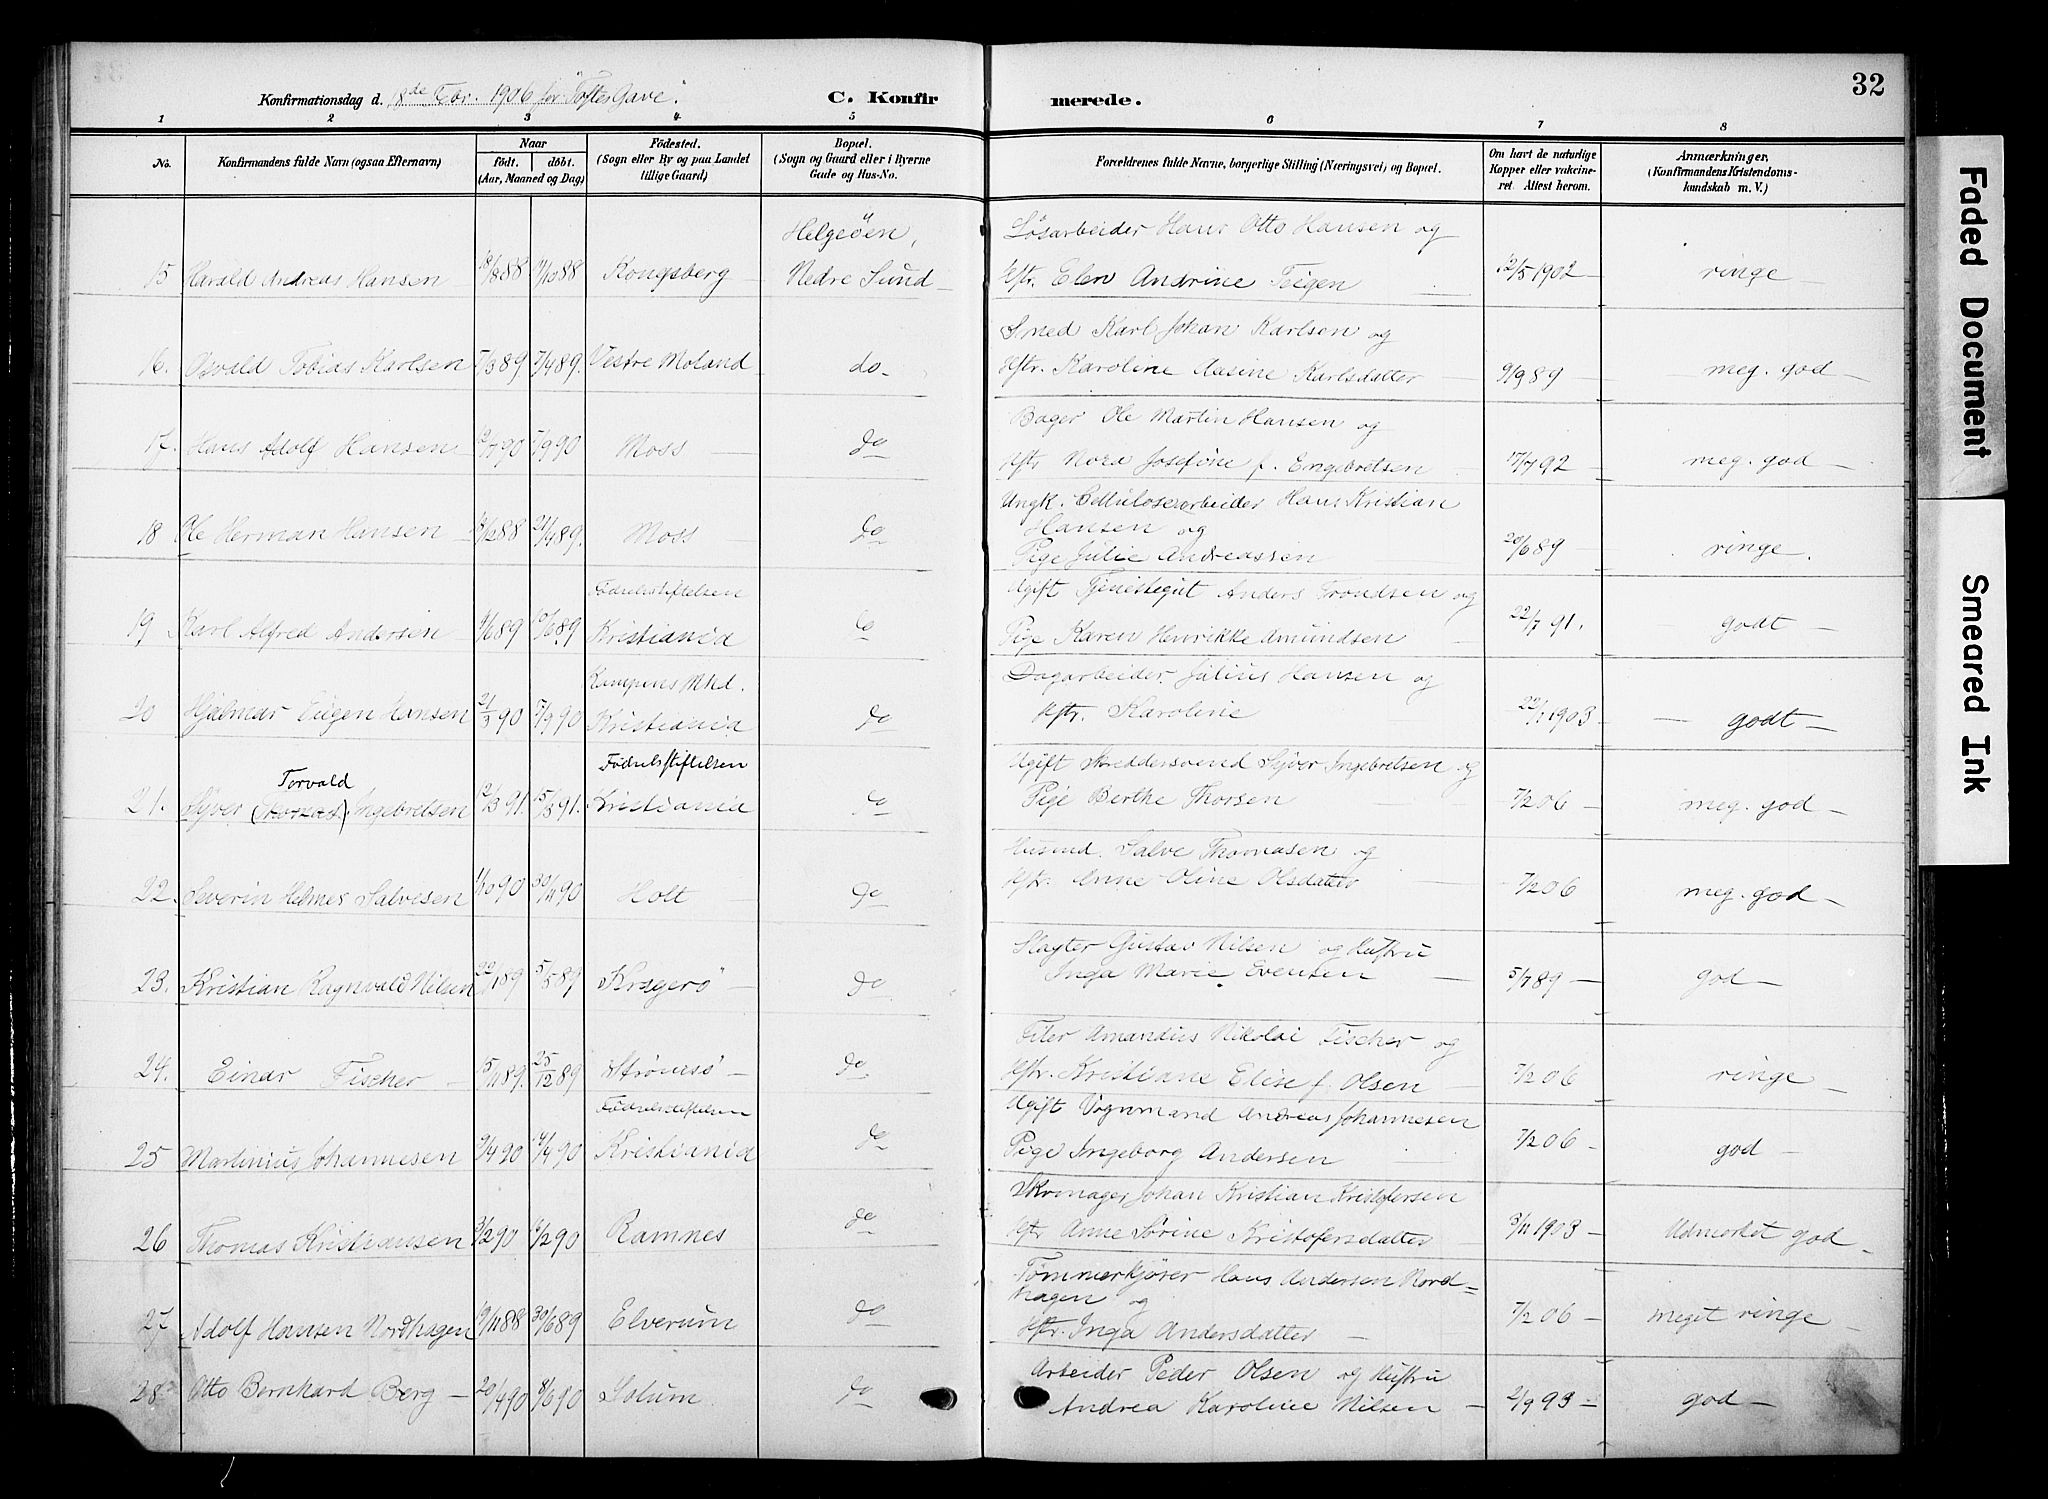 32
Konfirmationsdag d. 18de Febr. 1906 for "Toftes Gave".
C. Konfirmerede.
1 2 3 4 5 6 7 8
No.
Konfirmandens fulde Navn (ogsaa Efternavn)
Naar
født. døbt.
(Aar, Maaned og Dag)
Fødested.
(Sogn eller By og paa Landet
tillige Gaard)
Bopæl.
(Sogn og Gaard eller i Byerne
Gade og Hus-No.
Forældrenes fulde Navne, borgerlige Stilling (Næringsvei) og Bopæl.
Om havt de naturlige
Kopper eller vakcine-
ret. Attest herom.
Anmærkninger.
(Konfirmandens Kristendoms-
kundskab m. V.)
Helgeöen, Løsarbeider Hans Otto Hansen og
15 Harald Andreas Hansen 18/8 88 14/10 88 Kongsberg Nedre Sund Hstr. Elen Andrine Teigen 12/5 1902 ringe
Smed Karl Johan Karlsen og
16. Osvald Tobias Karlsen 7/3 89 7/4 89. Vestre Moland do Hstr. Karoline Aasine Karlsdatter 9/9 89 meg. god
Bager Ole Martin Hansen og
17. Hans Adolf Hansen 12/7 90 7/9 90 Moss do Hstr Nora Josefine f. Engebretsen 17/7 92 meg. god
Ungk. Cellulosearbeider Hans Kristian
Hansen og
18 Ole Herman Hansen 18/12 88 21/4 89. Moss do Pige Julie Andreassen 20/6 89 ringe.
Födselsstiftelsen Ugift Tjenestegut Anders Trondsen og
19 Karl Alfred Andersen 4/6 89 10/6 89 Kristiania do Pige Karen Henrikke Amundsen 22/7 91. godt
Kampens Mkd. Dagarbeider Julius Hansen og
20 Hjalmar Eugen Hansen 21/3 90 7/9 90 Kristiania do Hstr. Karoline 22/1 1903 godt
Torvald Födselsstiftelsen Ugift Skreddersvend Syver Ingebretsen og
21. Syver (Thomas) Ingebretsen 12/3 91. 15/3 91. Kristiania do Pige Berthe Thorsen 7/2 06 meg. god
Husmd. Salve Thomasen og
22. Severin Helmer Salvesen 1/10 90 30/11 90 Holt do Hstr. Anne Oline Olsdatter 7/2 06 meg. god
Slagter Gustav Nilsen og Hustru
23. Kristian Ragnvald Nilsen 22/1 89 5/5 89 Kragerö do Inga Marie Evensen 5/7 89 god
Filer Amandus Nikolai Fischer og
24. Einar Fischer 15/11 89. 25/12 89 Strömsö do Hstr. Kristiane Elise f. Olsen 7/2 06 ringe
Födselsstiftelsen Ugift Vognmand Andreas Johannesen
25 Martinius Johannesen 9/4 90 14/4 90 Kristiania do Pige Ingeborg Andersen 7/2 06 god
Skomager Johan Kristian Kristofersen
26 Thomas Kristiansen 3/2 90 16/2 90 Ramnes do Hstr Anne Sörine Kristofersdatter 3/11 1903 Udmerket god
Tømmerkjører Hans Andersen Nord=
hagen og
27. Adolf Hansen Nordhagen 19/11 88 30/6 89 Elverum do Hstr. Inga Andersdatter 7/2 06 meget ringe
Arbeider Peder Olsen og Hustru
28. Otto Bernhard Berg 20/4 90 8/6 90 Solum do Andrea Karoline Nilsen 2/9 93 god
Faded Document
Smeared Ink